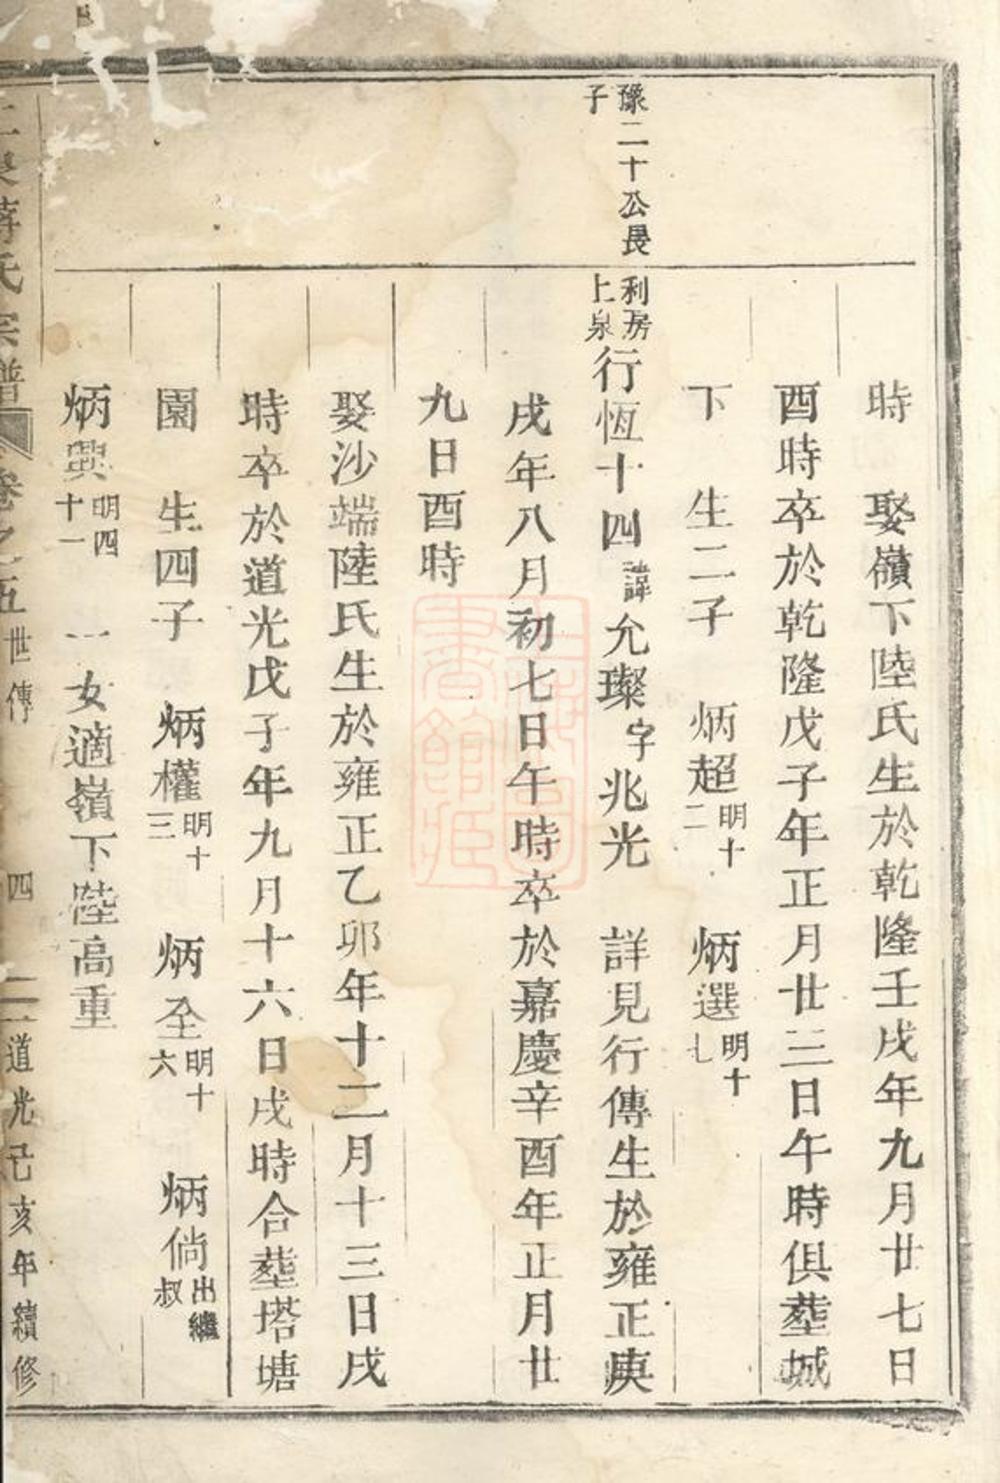 時　娶嶺下陸氏生於乾隆壬戌年九月廿七日
酉時卒於乾隆戊子年正月廿三日午時俱塟城
下　生二子　炳超明十二　炳選明十七
豫二十公長子
利房上泉行恆十四諱允璨字兆光　詳見行傳生於雍正庚
戌年八月初七日午時卒於嘉慶辛酉年正月廿
九日酉時
娶沙端陸氏生於雍正乙卯年十二月十三日戌
時卒於道光戊子年九月十六日戌時合塟塔塘
園　生四子　炳權明十三　炳至明十六　炳倘出繼叔
炳興明四十一　一女適嶺下陸高重
氏宗譜　卷之五　世傳　四　道光己亥年續修
上海圖書館藏